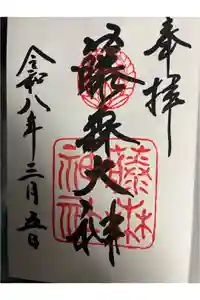 奉拝
藤森大神
令和八年三月五日
藤森
神社